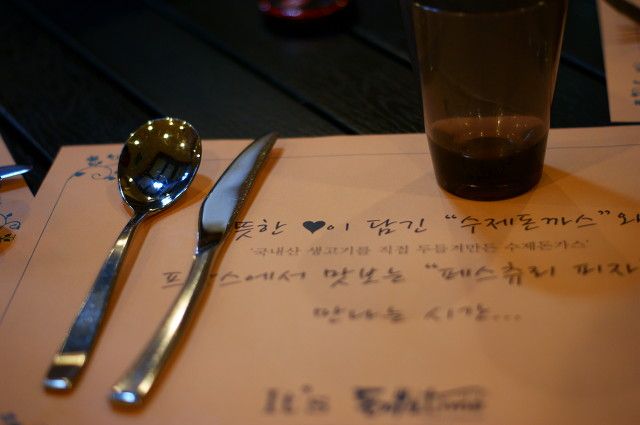 뜻한 ♥이 담긴 “수제돈까스”와
'국내산 생고기를 직접 두들겨만든 수제돈가스'
에서 맛보는 “페스츄리 피자
만나는 시간...
It's